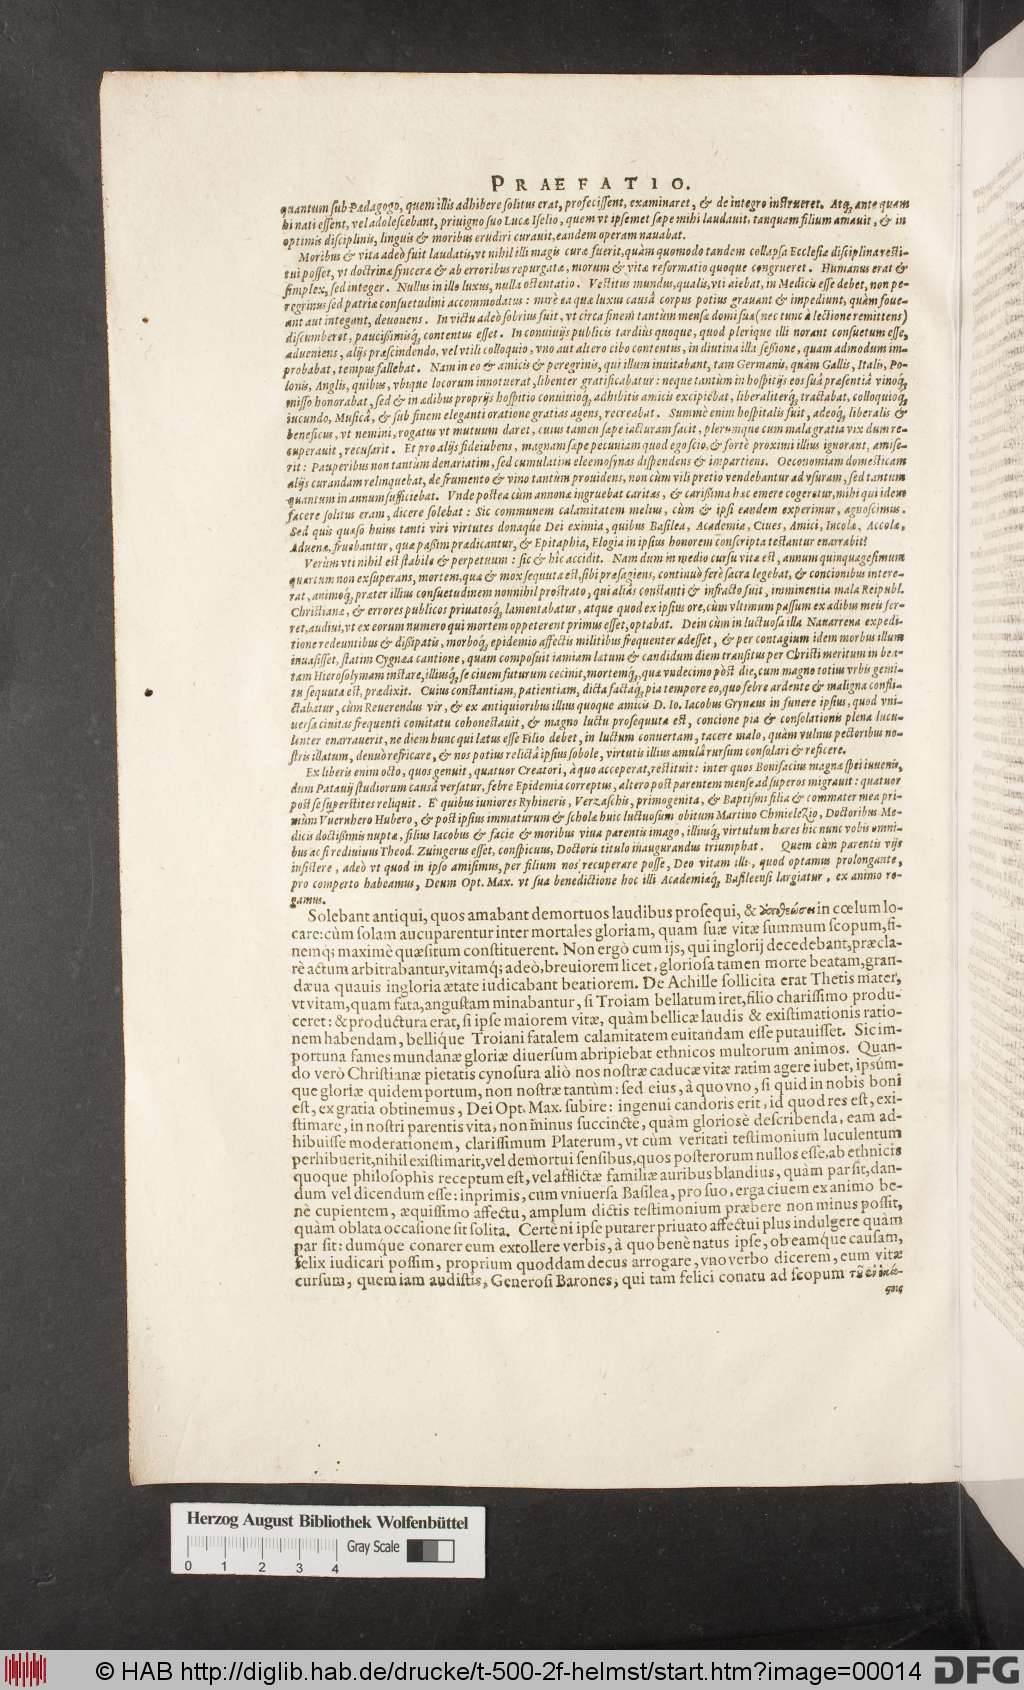 PRAEFATIO.
quantum sub Pædagogo, quem illis adhibere solitus erat, profecissent, examinaret, & de integro instrueret. Atq; ante quam
hi nati essent, vel adolescebant, priuigno suo Lucæ Iselio, quem vt ipsemet sæpe mihi laudauit, tanquam filium amauit, & in
optimis disciplinis, linguis & moribus erudiri curauit, eandem operam nauabat.
Moribus & vita adeò fuit laudatis, vt nihil illi magis curæ fuerit, quàm quomodo tandem collapsa Ecclesiæ disciplina resti-
tui posset, vt doctrinæ synceræ & ab erroribus repurgatæ, morum & vitæ reformatio quoque congrueret. Humanus erat &
simplex, sed integer. Nullus in illo luxus, nulla ostentatio. Vestitus mundus, qualis, vti aiebat, in Medicis esse debet, non pe-
regrinus sed patriæ consuetudini accommodatus: mirè ea quæ luxus causâ corpus potius grauant & impediunt, quàm foue-
ant aut integant, deuouens. In victu adeò sobrius fuit, vt circa finem tantùm mensæ domi suæ (nec tunc à lectione remittens)
discumberet, paucißimisq́; contentus esset. In conuiuijs publicis tardiùs quoque, quod plerique illi norant consuetum esse,
adueniens, alijs præscindendo, vel vtili colloquio, vno aut altero cibo contentus, in diutina illa seßione, quam admodum im-
probabat, tempus fallebat. Nam in eo & amicis & peregrinis, qui illum inuitabant, tam Germanis, quàm Gallis, Italis, Po-
lonis, Anglis, quibus, vbique locorum innotuerat, libenter gratificabatur: neque tantùm in hospitijs eos suâ præsentiâ vinoq́;
misso honorabat, sed & in ædibus proprijs hospitio conuiuioq́; adhibitis amicis excipiebat, liberaliterq́; tractabat, colloquioq́;
iucundo, Musicâ, & sub finem eleganti oratione gratias agens, recreabat. Summè enim hospitalis fuit, adeoq́; liberalis &
beneficus, vt nemini, rogatus vt mutuum daret, cuius tamen sæpe iacturam facit, plerumque cum mala gratia vix dum re-
cuperauit, recusarit. Et pro alijs fideiubens, magnam sæpe pecuniam quod ego scio, & fortè proximi illius ignorant, amise-
rit: Pauperibus non tantùm denariatim, sed cumulatim eleemosynas dispendens & impartiens. Oeconomiam domesticam
alijs curandam relinquebat, de frumento & vino tantùm prouidens, non cùm vili pretio vendebantur ad vsuram, sed tantum
quantum in annum sufficiebat. Vnde postea cùm annonæ ingruebat caritas, & carißima hac emere cogeretur, mihi qui idem
facere solitus eram, dicere solebat: Sic communem calamitatem melius, cùm & ipsi eandem experimur, agnoscimus.
Sed quis quæso huius tanti viri virtutes donaque Dei eximia, quibus Basilea, Academia, Ciues, Amici, Incolæ, Accolæ,
Aduenæ, fruebantur, quæ paßim prædicantur, & Epitaphia, Elogia in ipsius honorem conscripta testantur enarrabit!
Verùm vti nihil est stabile & perpetuum: sic & hîc accidit. Nam dum in medio cursu vitæ est, annum quinquagesimum
quartum non exsuperans, mortem, quæ & mox sequuta est, sibi præsagiens, continuò ferè sacra legebat, & concionibus intere-
rat, animoq́; præter illius consuetudinem nonnihil prostrato, qui aliàs constanti & infracto fuit, imminentia mala Reipubl.
Christianæ, & errores publicos priuatosq́; lamentabatur, atque quod ex ipsius ore, cùm vltimum passum ex ædibus meis fer-
ret, audiui, vt ex eorum numero qui mortem oppeterent primus esset, optabat. Dein cùm in luctuosa illa Nauarrena expedi-
tione redeuntibus & dißipatis, morboq́; epidemio affectis militibus frequenter adesset, & per contagium idem morbus illum
inuasisset, statim Cygnæa cantione, quam composuit iamiam lætum & candidum diem transitus per Christi meritum in bea-
tam Hierosolymam instare, illiusq́; se ciuem futurum cecinit, mortemq́;, quæ vndecimo pòst die, cum magno totius vrbis gemi-
tu sequuta est, prædixit. Cuius constantiam, patientiam, dicta factaq́; pia tempore eo, quo febre ardente & maligna confli-
ctabatur, cùm Reuerendus vir, & ex antiquioribus illius quoque amicis D. Io. Iacobus Grynæus in funere ipsius, quod vni-
uersa ciuitas frequenti comitatu cohonestauit, & magno luctu prosequuta est, concione pia & consolationis plena lucu-
lenter enarrauerit, ne diem hunc qui lætus esse Filio debet, in luctum conuertam, tacere malo, quàm vulnus pectoribus no-
stris illatum, denuò refricare, & nos potius relictâ ipsius sobole, virtutis illius æmulâ rursum consolari & reficere.
Ex liberis enim octo, quos genuit, quatuor Creatori, à quo acceperat, restituit: inter quos Bonifacius magnæ spei iuuenis,
dum Patauij studiorum causâ versatur, febre Epidemia correptus, altero post parentem mense ad superos migrauit: quatuor
post se superstites reliquit. E' quibus iuniores Ryhineris, Verzaschis, primogenita, & Baptismi filia & commater mea pri-
mùm Vuernhero Hubero, & post ipsius immaturum & scholæ huic luctuosum obitum Martino Chmielezio, Doctoribus Me-
dicis doctißimis nupta, filius Iacobus & facie & moribus viua parentis imago, illiusq́; virtutum hæres hic nunc vobis omni-
bus ac si rediuiuus Theod. Zuingerus esset, conspicuus, Doctoris titulo inaugurandus triumphat. Quem cùm parentis vijs
insistere, adeò vt quod in ipso amisimus, per filium nos recuperare posse, Deo vitam illi, quod optamus prolongante,
pro comperto habeamus, Deum Opt. Max. vt sua benedictione hoc illi Academiæq́; Basileensi largiatur, ex animo ro-
gamus.
Solebant antiqui, quos amabant demortuos laudibus prosequi, & ἀποθεώσει in cœlum lo-
care: cùm solam aucuparentur inter mortales gloriam, quam suæ vitæ summum scopum, fi-
nemq́; maximè quæsitum constituerent. Non ergò cum ijs, qui inglorij decedebant, præcla-
rè actum arbitrabantur, vitamq́; adeò, breuiorem licet, gloriosa tamen morte beatam, gran-
dæua quauis ingloria ætate iudicabant beatiorem. De Achille sollicita erat Thetis mater,
vt vitam, quam fata, angustam minabantur, si Troiam bellatum iret, filio charissimo produ-
ceret: & productura erat, si ipse maiorem vitæ, quàm bellicæ laudis & existimationis ratio-
nem habendam, bellique Troiani fatalem calamitatem euitandam esse putauisset. Sic im-
portuna fames mundanæ gloriæ diuersum abripiebat ethnicos multorum animos. Quan-
do verò Christianæ pietatis cynosura aliò nos nostræ caducæ vitæ ratim agere iubet, ipsúm-
que gloriæ quidem portum, non nostræ tantùm: sed eius, à quo vno, si quid in nobis boni
est, ex gratia obtinemus, Dei Opt. Max. subire: ingenui candoris erit, id quod res est, exi-
stimare, in nostri parentis vita, non minus succinctè, quàm gloriosè describenda, eam ad-
hibuisse moderationem, clarissimum Platerum, vt cùm veritati testimonium luculentum
perhibuerit, nihil existimarit, vel demortui sensibus, quos posterorum nullos esse, ab ethnicis
quoque philosophis receptum est, vel afflictæ familiæ auribus blandius, quàm par sit, dan-
dum vel dicendum esse: inprimis, cum vniuersa Basilea, pro suo, erga ciuem ex animo be-
nè cupientem, æquissimo affectu, amplum dictis testimonium præbere non minus possit,
quàm oblata occasione sit solita. Certè ni ipse putarer priuato affectui plus indulgere quàm
par sit: dumque conarer eum extollere verbis, à quo benè natus ipse, ob eamque causam,
felix iudicari possim, proprium quoddam decus arrogare, vno verbo dicerem, eum vitæ
cursum, quem iam audistis, Generosi Barones, qui tam felici conatu ad scopum τῆς
Herzog August Bibliothek Wolfenbüttel
Gray Scale
0 1 2 3 4
© HAB http://diglib.hab.de/drucke/t-500-2f-helmst/start.htm?image=00014
DFG